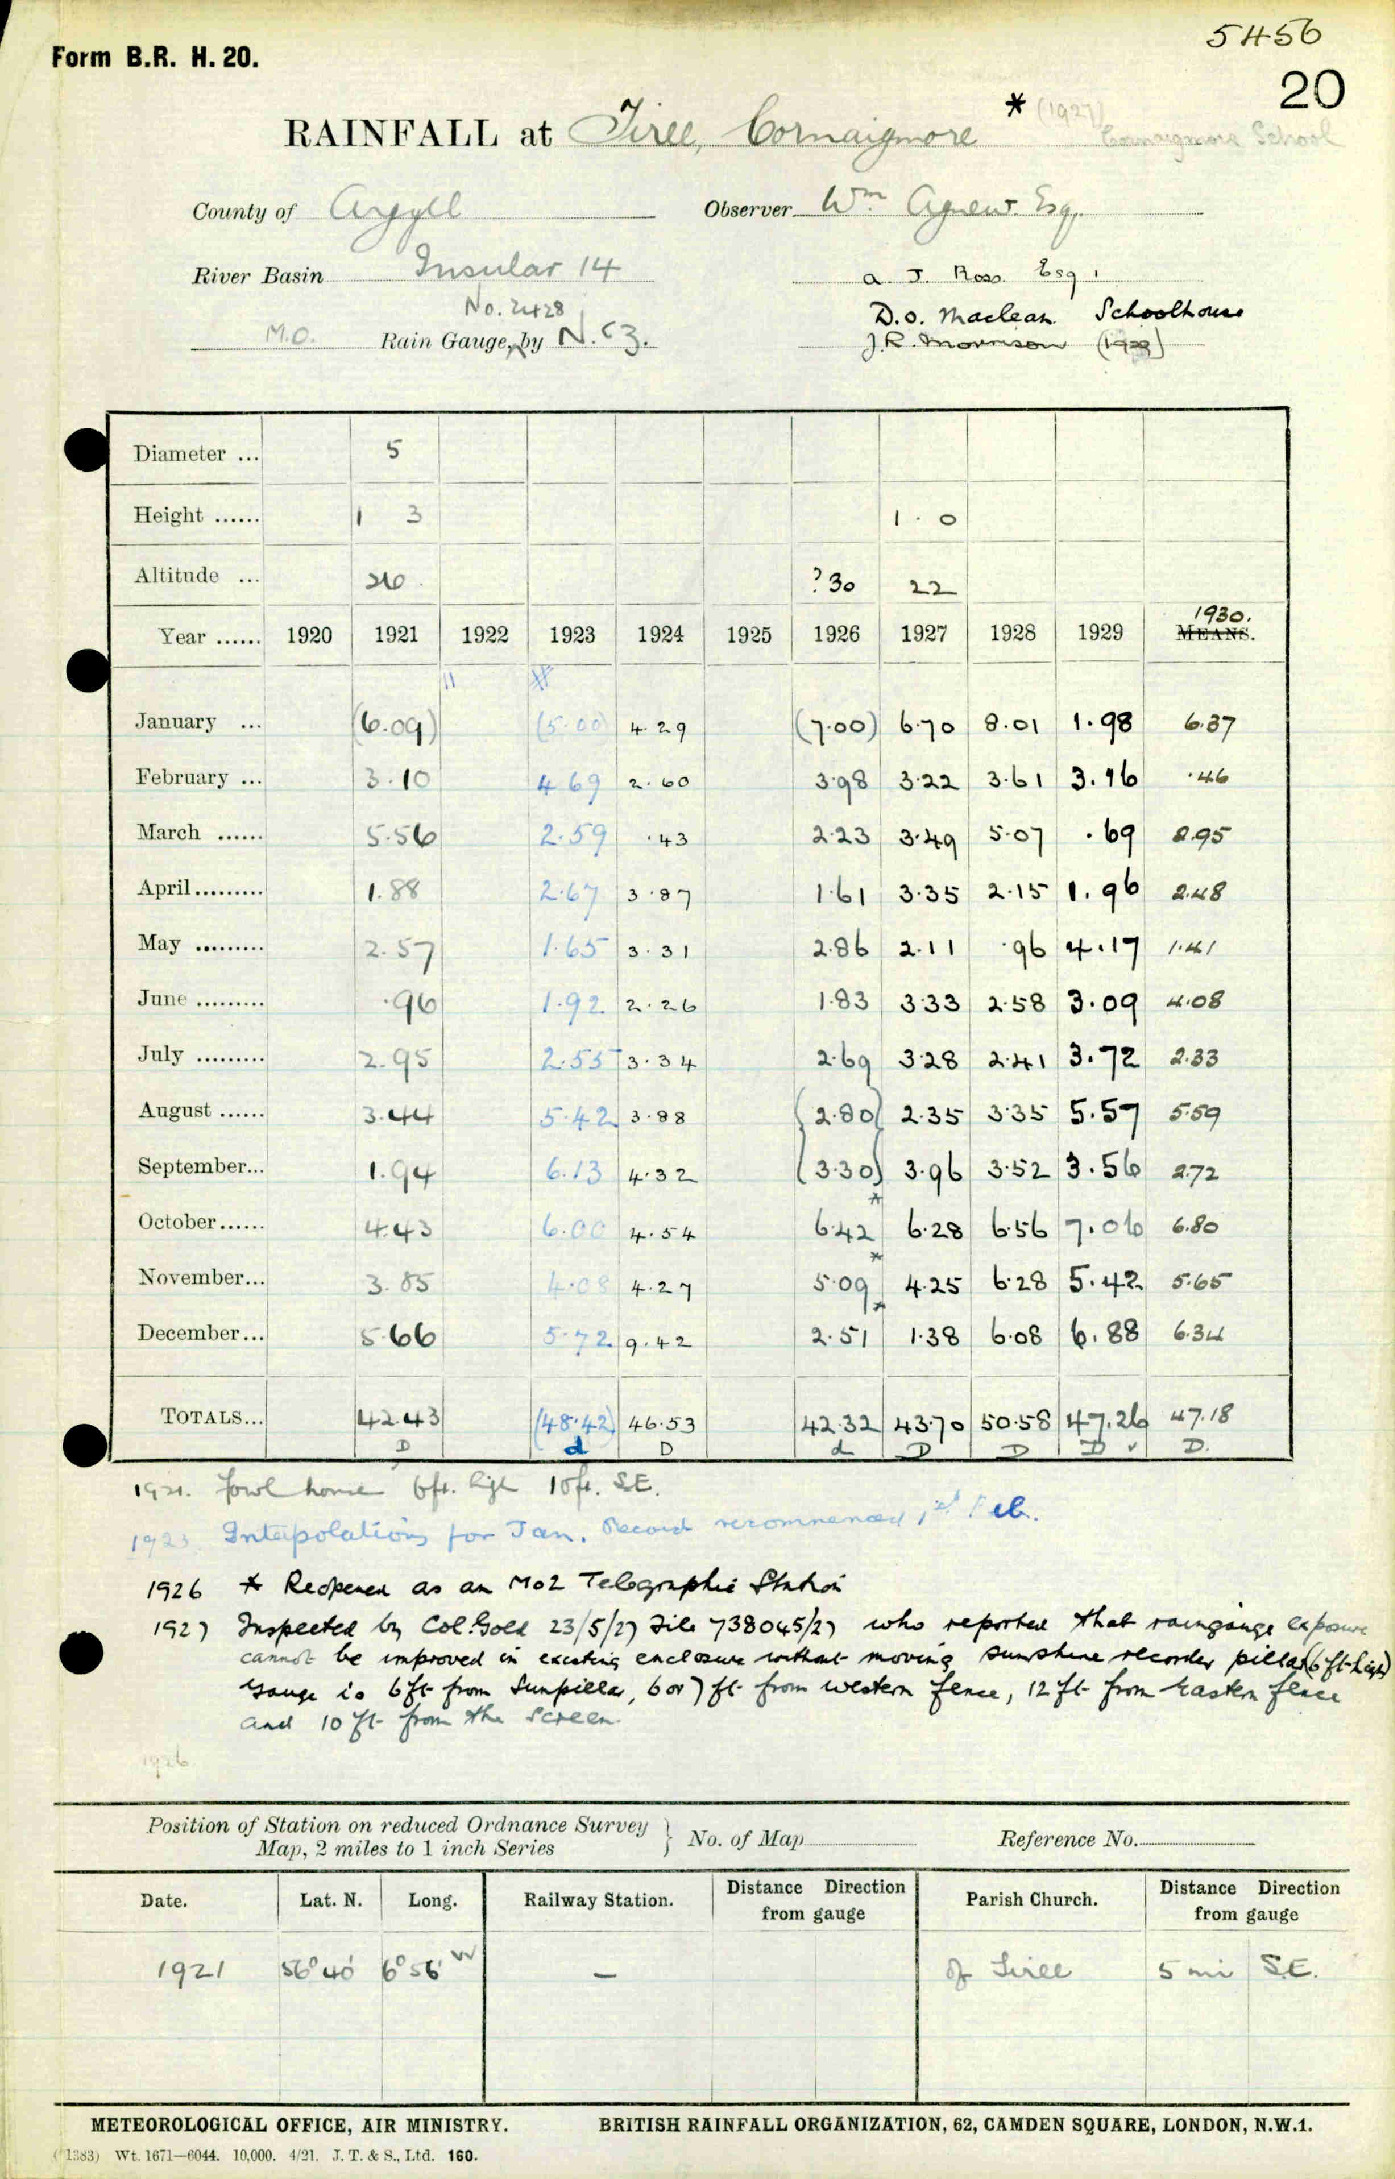 5456
Form B.R. H. 20.
20
RAINFALL at Tiree, Cornaigmore * (1927) Cornaigmore School
County of Argyll Observer Wm Agnew Esq.
River Basin Insular 14 A. J. Ross Esq.
No. 2428 D.O. Maclean Schoolhouse
M.O. Rain Gauge, by N.&Z. J.R. Morrison
Diameter ... 5
Height ...... 1 3 1 . 0
Altitude ... 26 ?30 22
1930.
Year ...... 1920 1921 1922 1923 1924 1925 1926 1927 1928 1929 MEANS.
January ... (6.09) (5.00) 4.29 (7.00) 6.70 8.01 1.98 6.37
February ... 3.10 4.69 2.60 3.98 3.22 3.61 3.16 .46
March ...... 5.56 2.59 .43 2.23 3.49 5.07 .69 2.95
April ......... 1.88 2.67 3.87 1.61 3.35 2.15 1.96 2.48
May ......... 2.57 1.65 3.31 2.86 2.11 .96 4.17 1.41
June ......... .96 1.92 2.26 1.83 3.33 2.58 3.09 4.08
July ......... 2.95 2.55 3.34 2.69 3.28 2.41 3.72 2.33
August ...... 3.44 5.42 3.88 (2.80) 2.35 3.35 5.57 5.59
September... 1.94 6.13 4.32 (3.30) 3.96 3.52 3.56 2.72
October ...... 4.43 6.00 4.54 6.42 * 6.28 6.56 7.06 6.80
November... 3.85 4.08 4.27 5.09 * 4.25 6.28 5.42 5.65
December... 5.66 5.72 9.42 2.51 * 1.38 6.08 6.88 6.34
TOTALS... 42.43 (48.42) 46.53 42.32 43.70 50.58 47.26 47.18
D d D d D D D v D.
1921. Fowl house 6ft. high 10ft. S.E.
1923 Interpolations for Jan. Record recommenced 1st Feb.
1926 * Reopened as an MO2 Telegraphic Station
1927 Inspected by Col. Gold 23/5/27 File 738045/27 who reported that raingauge exposure
cannot be improved in existing enclosure without moving sunshine recorder pillar (6 ft high)
Gauge is 6 ft from Sunpillar, 6 or 7 ft from western fence, 12 ft from Eastern fence
and 10 ft from the screen.
1926
Position of Station on reduced Ordnance Survey
Map, 2 miles to 1 inch Series } No. of Map Reference No.
Date. Lat. N. Long. Railway Station. Distance Direction from gauge Parish Church. Distance Direction from gauge
1921 56° 40' 6° 56' W — of Tiree 5 mi S.E.
METEOROLOGICAL OFFICE, AIR MINISTRY. BRITISH RAINFALL ORGANIZATION, 62, CAMDEN SQUARE, LONDON, N.W.1.
(1383) Wt. 1671—6044. 10,000. 4/21. J. T. & S., Ltd. 160.